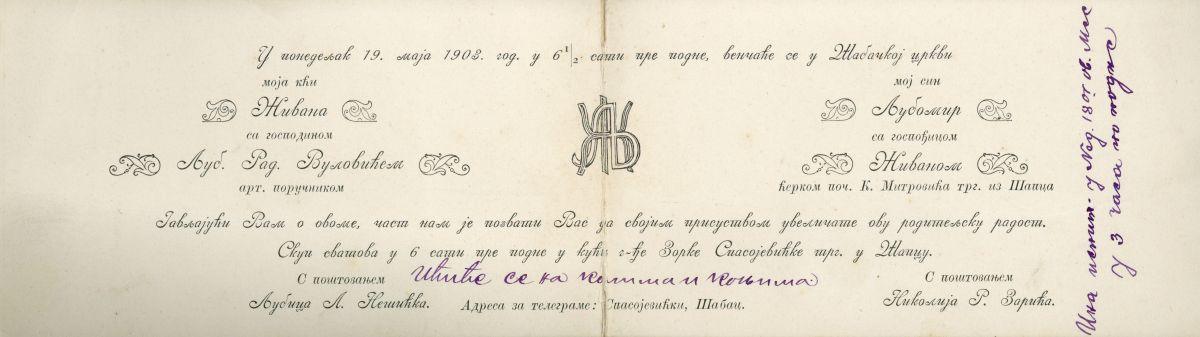 У понедељак 19. маја 1903. год. у 6 1/2 сати пре подне, венчаће се у Шабачкој цркви
моја кћи
Живана
са господином
Љуб. Рад. Вуловићем
арт. поручником
мој син
Љубомир
са госпођицом
Живаном
ћерком поч. К. Митровића трг. из Шапца
Јављајући Вам о овоме, част нам је позвати Вас да својим присуством увеличате ову родитељску радост.
Скуп сватова у 6 сати пре подне у кући г-ђе Зорке Спасојевићке трг. у Шапцу.
С поштовањем
Љубица Л. Нешићка.
се на колима и коњима
Адреса за телеграме: Спасојевићки, Шабац.
С поштовањем
Николија Р. Зарића.
у Нед. 18ог ов. Мес
у 3 часа по подне